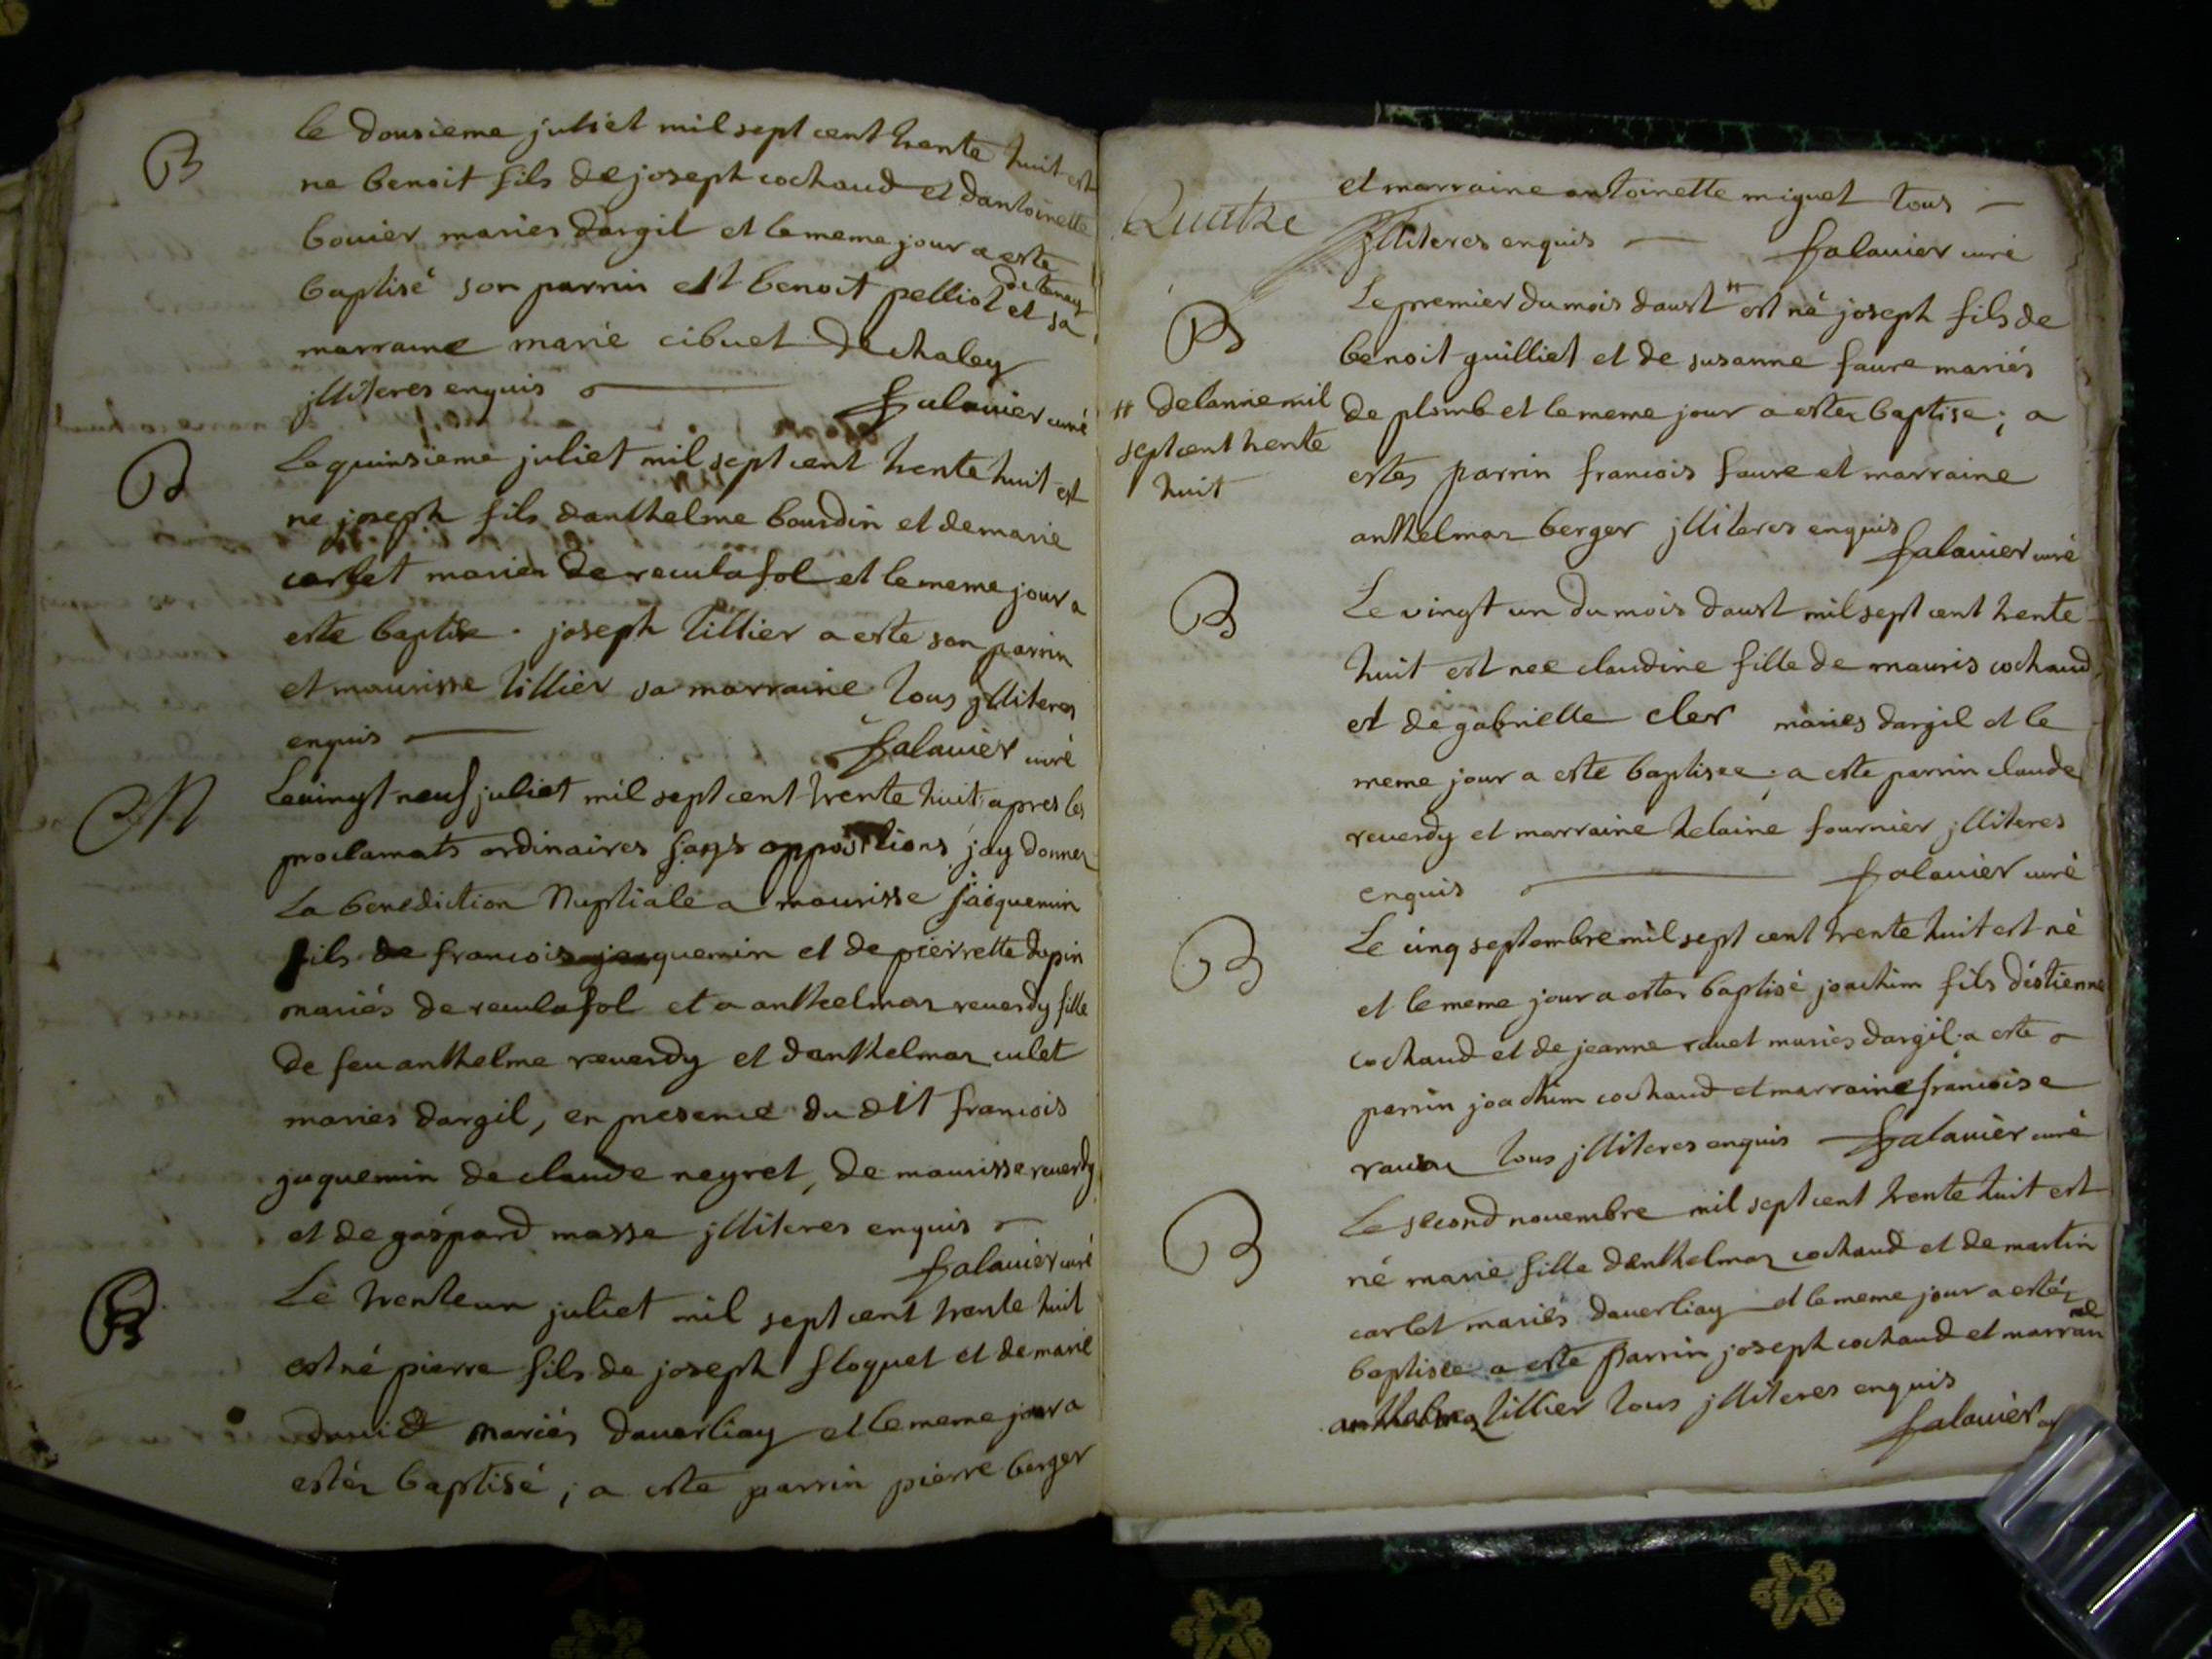 B
le dousieme juliet mil sept cent trente huit est
ne benoit fils de joseph cochaud et dantoinette
bouier mariés dargil et le meme jour a este
baptisé son parrin est benoit pelliot et sa
marraine marie cibuet de chaley
jlliteres enquis falauier curé
B
Le quinsieme juliet mil sept cent trente huit est
ne joseph fils danthelme bourdin et de marie
carlet mariés de reculafol et le meme jour a
este baptise . joseph tillier a este son parrin
et maurisse tillier sa marraine tous jlliteres
enquis falauier curé
M
Le vingt neuf juliet mil sept cent trente huit apres les
proclamats ordinaires sans oppositions jay donner
La benediction Nuptiale a maurisse jaquemin
fils de francois jaquemin et de pierrette dupin
mariés de reculafol et a anthelmaz reuerdy fille
de feu anthelme reuerdy et danthelmaz culet
mariés dargil, en presence du dit francois
jaquemin de claude neyret, de maurisse reuerdy
et de gaspard masse jlliteres enquis
falauier curé
B
Le trente un juliet mil sept cent trente huit
est né pierre fils de joseph floquet et de marie
dauid mariés dauerliay et le meme jour a
estér baptisé ; a este parrin pierre berger
Quatre
et marraine antoinette miguet tous
jlliteres enquis falauier curé
B
Le premier du mois daust # est né joseph fils de
benoit guilliet et de susanne faure mariés
# de lannee mil
sept cent trente
huit
de plomb et le meme jour a ester baptise ; a
estes parrin francois faure et marraine
anthelmaz berger jlliteres enquis falauier curé
B
Le vingt un du mois daust mil sept cent trente
huit est nee claudine fille de mauris cochaud
et de gabrielle cler mariés dargil et le
meme jour a este baptisee ; a este parrin claude
reuerdy et marraine helaine fournier jlliteres
enquis falauier curé
B
Le cinq septembre mil sept cent trente huit est né
et le meme jour a ester baptisé joachim fils déstienne
cochaud et de jeanne rauet mariés dargil . a este
parrin joachim cochaud et marraine francoise
tous jlliteres enquis falauier curé
B
Le second nouembre mil sept cent trente huit est
né marie fille danthelmaz cochaud et de martin
carlet mariés dauerliay et le meme jour a estér
baptisee a este parrin joseph cochaud et marraine
anthelmaz tillier tous jlliteres enquis
falauier